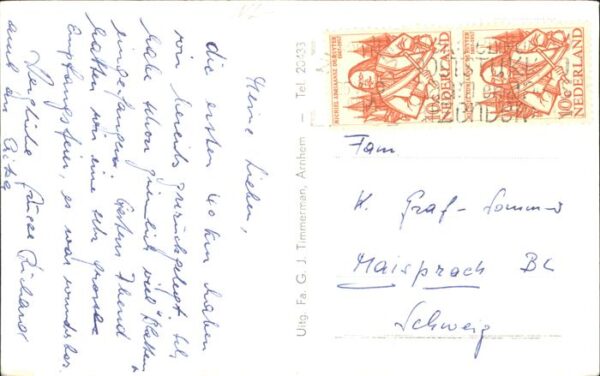 Meine Lieben,
die ersten 40 km haben
wir bereits zurückgelegt &
habe schon ziemlich viel "Blattern"
eingefangen. Gestern Abend
hatten wir eine sehr grosse
Empfangsfeier, es war wunderbar.
Herzliche Grüsse Richard
auch an Rita
Uitg. Fa. G. J. Timmerman, Arnhem — Tel. 20433
MICHIEL ADRIAANSZ. DE RUYTER
10c NEDERLAND
10c NEDERLAND
Fam.
K. Graf-Sommer
Maisprach BL
Schweiz